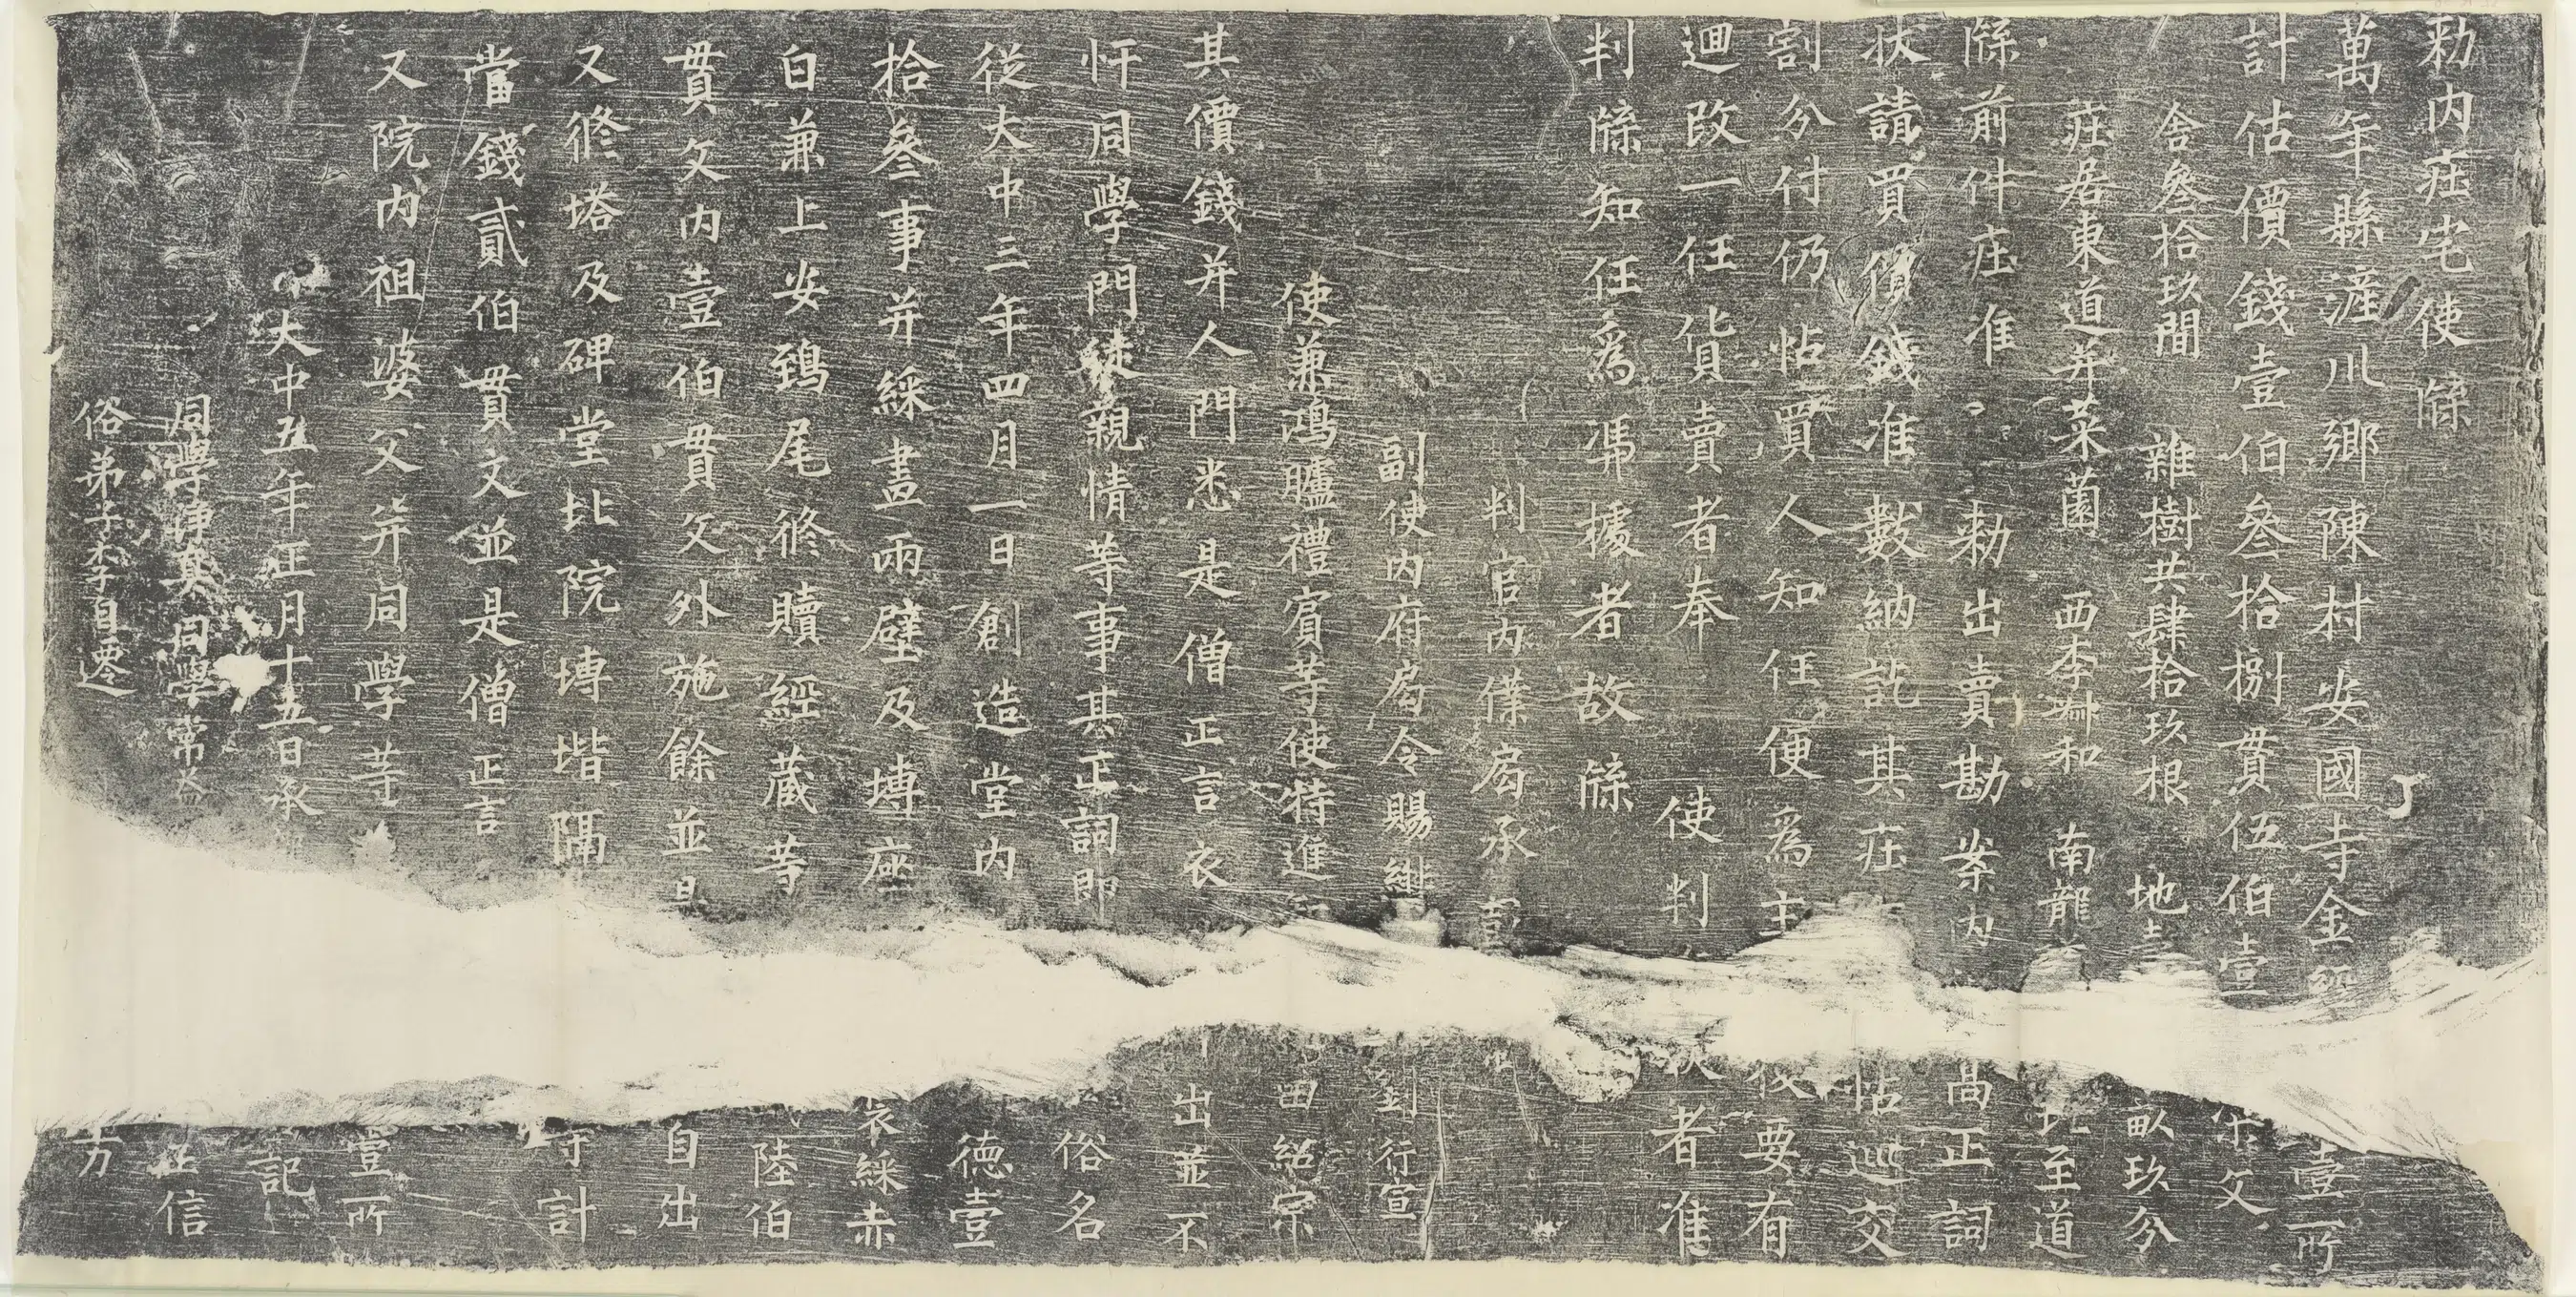 勅内莊宅使 牒
萬年縣滻川鄉陳村安國寺金經 壹所
計估價錢壹伯叁拾捌貫伍伯壹 文
舍叁拾玖間 雜樹共肆拾玖根 地 畝玖分
莊居東道并菜薗 西李升和 南龍 至道
牒前件莊准 勅出賣勘案内 正詞
狀請買價錢准數納訖其莊 帖巡交
割分付仍帖買人知任便爲主 要有
迴改一任貨賣者奉 使判 者准
判牒知任爲憑據者故牒
判官内僕局丞
副使内府局令賜緋 劉行宣
使兼鴻臚禮賓等使特進 田紹宗
其價錢并人門悉是僧正言衣 出並不
忓同學門徒親情等事其正詞即 俗名
從大中三年四月一日創造堂内 德壹
拾叁事并綵畫兩壁及塼座 綵赤
白兼上安鵄尾修贖經藏等 陸伯
貫文内壹伯貫文外施餘並 自出
又修塔及碑堂北院塼堦隔 計
當錢貳伯貫文並是僧正言
又院内祖婆父并同學等 壹所
大中五年正月十五日承 記
同學淨真 同學常 正信
俗弟子李自遷